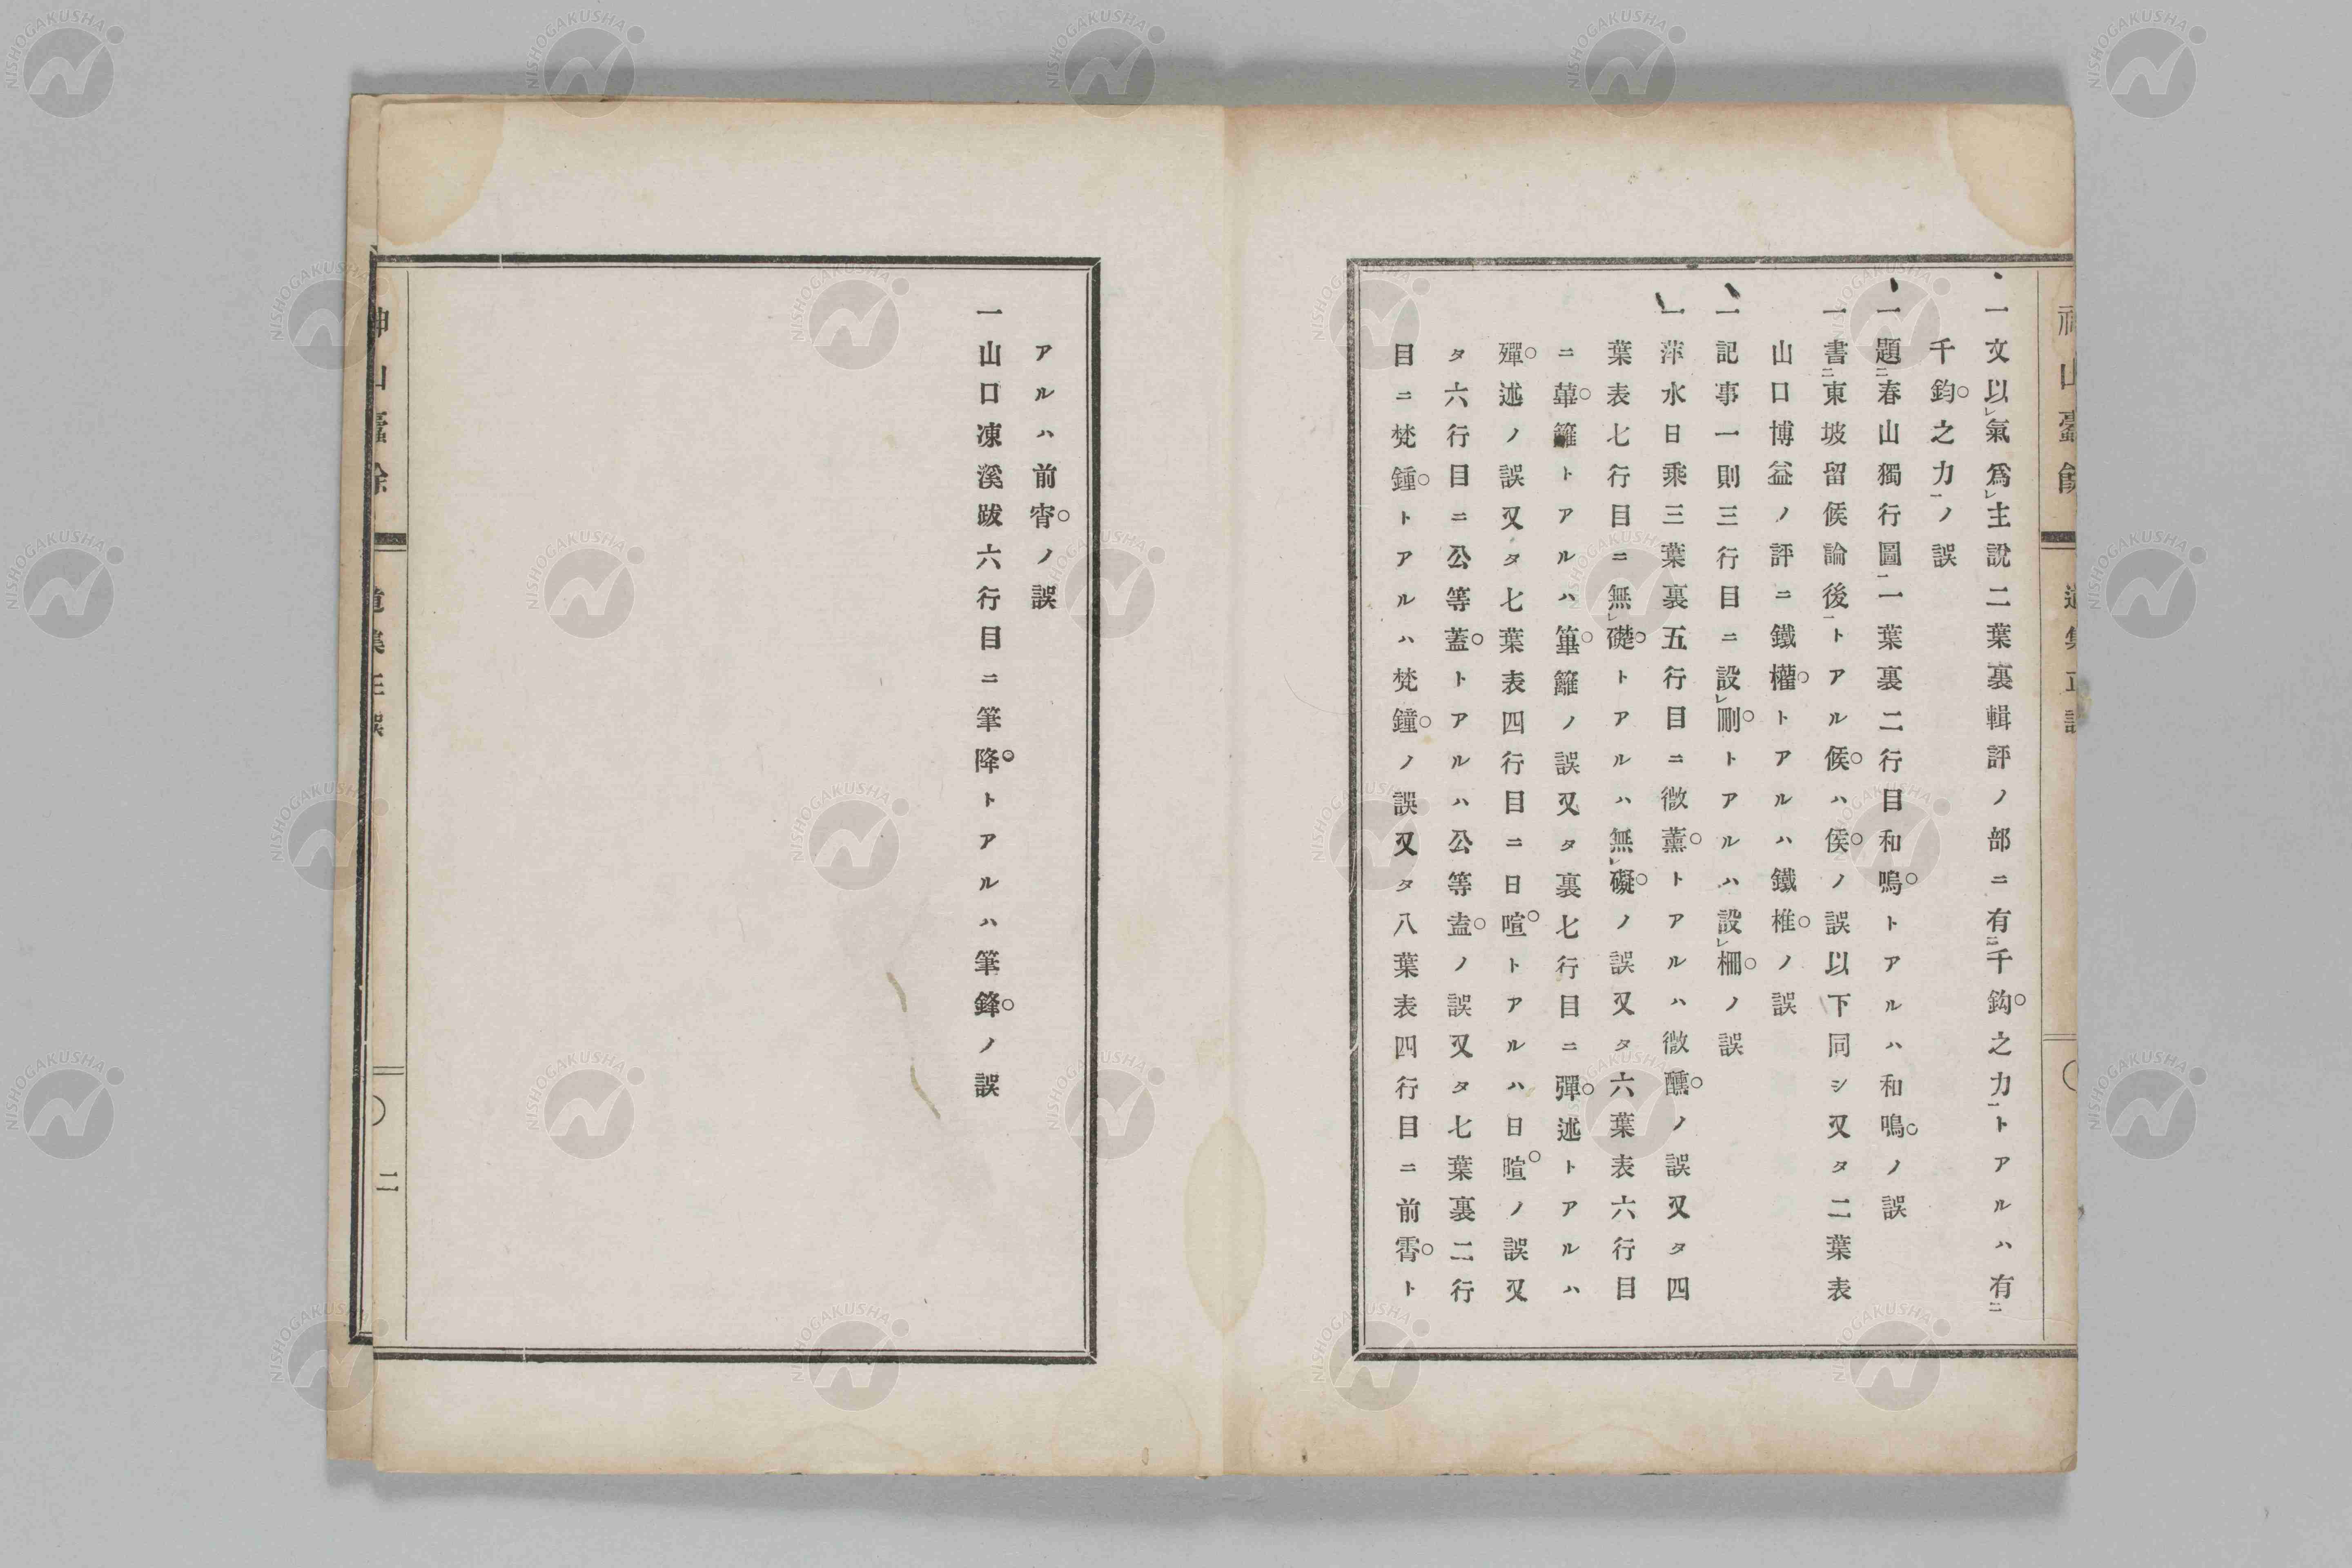 一文以氣爲主說二葉裏輯評ノ部ニ有千鈎之力トアルハ有
千鈞之力ノ誤
一題春山獨行圖一葉裏二行目和嗚トアルハ和鳴ノ誤
一書東坡留候論後トアル候ハ侯ノ誤以下同シ又タ二葉表
山口博益ノ評ニ鐵權トアルハ鐵椎ノ誤
一記事一則三行目ニ設刪トアルハ設柵ノ誤
一萍水日乘三葉裏五行目ニ微薰トアルハ微醺ノ誤又タ四
葉表七行目ニ無礎トアルハ無礙ノ誤又タ六葉表六行目
ニ蓽籬トアルハ篳籬ノ誤又タ裏七行目ニ彈述トアルハ
殫述ノ誤又タ七葉表四行目ニ日喧トアルハ日暄ノ誤又
タ六行目ニ公等蓋トアルハ公等盍ノ誤又タ七葉裏二行
目ニ梵鍾トアルハ梵鐘ノ誤又タ八葉表四行目ニ前霄ト
アルハ前宵ノ誤
一山口凍溪跋六行目ニ筆降トアルハ筆鋒ノ誤
二
NISHOGAKUSHA